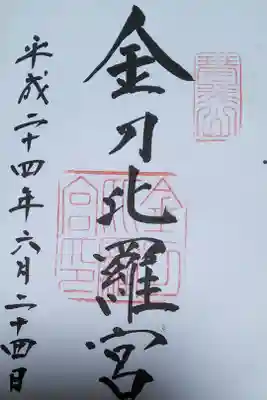 金刀比羅宮
平成二十四年六月二十四日